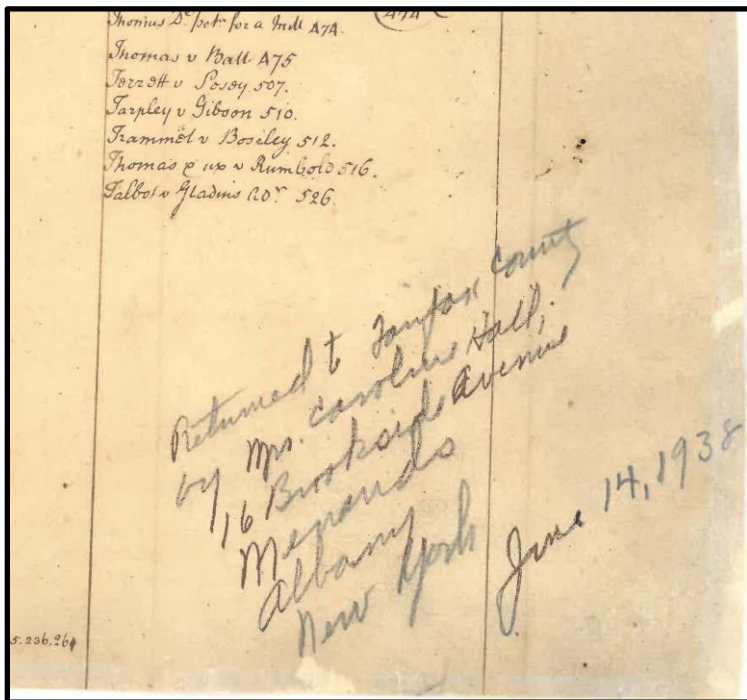 Thomas Dᵒ petⁿ for a Mill 474.
474
Thomas v Ball 475
Terrett v Posey 507.
Tarpley v Gibson 510.
Trammel v Boseley 512.
Thomas & ux v Rumbold 516.
Talbot v Gladins 526.
Returned to Fairfax County
by Mrs. Caroline Hall,
16 Brookside Avenue
Menands
Albany
New York
June 14, 1938
5.236.261